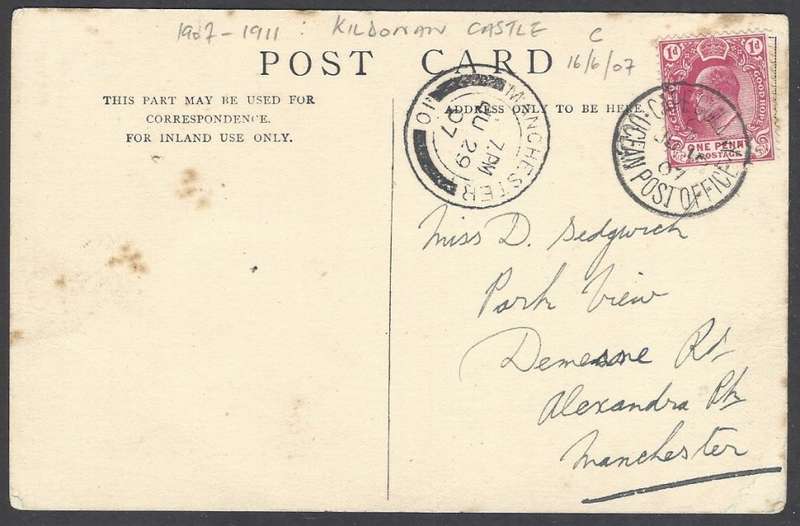 1907-1911 : KILDONAN CASTLE C
16/6/07
POST CARD
THIS PART MAY BE USED FOR
CORRESPONDENCE.
FOR INLAND USE ONLY.
ADDRESS ONLY TO BE HERE.
MANCHESTER
7.PM
JU 29
07
1d 1d
GOOD HOPE
ONE PENNY
POSTAGE
OCEAN POST OFFICE
07
Miss D. Sedgwich
Park View
Demesne Rd
Alexandra Pk
Manchester